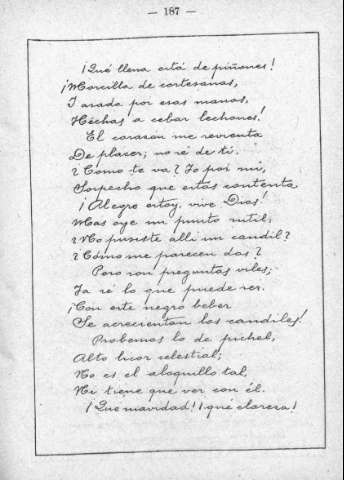 — 187 —
¡Qué llena está de piñones!
¡Morcilla de cortesanos,
I asada por esas manos,
Hechas a cebar lechones!
El corazon me revienta
De placer; no sé de tí.
¿Como te va? Yo por mi,
Sospecho que estás contenta
¡Alegre estoy, vive Dios!
Mas oye un punto sutil;
¿No pusiste allí un candil?
¿Cómo me parecen dos?
Pero son preguntas viles;
Ya sé lo que puede ser.
¡Con este negro beber
Se acrecientan los candiles!
Probemos lo de pichel,
Alto licor celestial;
No es el aloquillo tal,
Ni tiene que ver con él.
¡Que suavidad! ¡qué clareza!